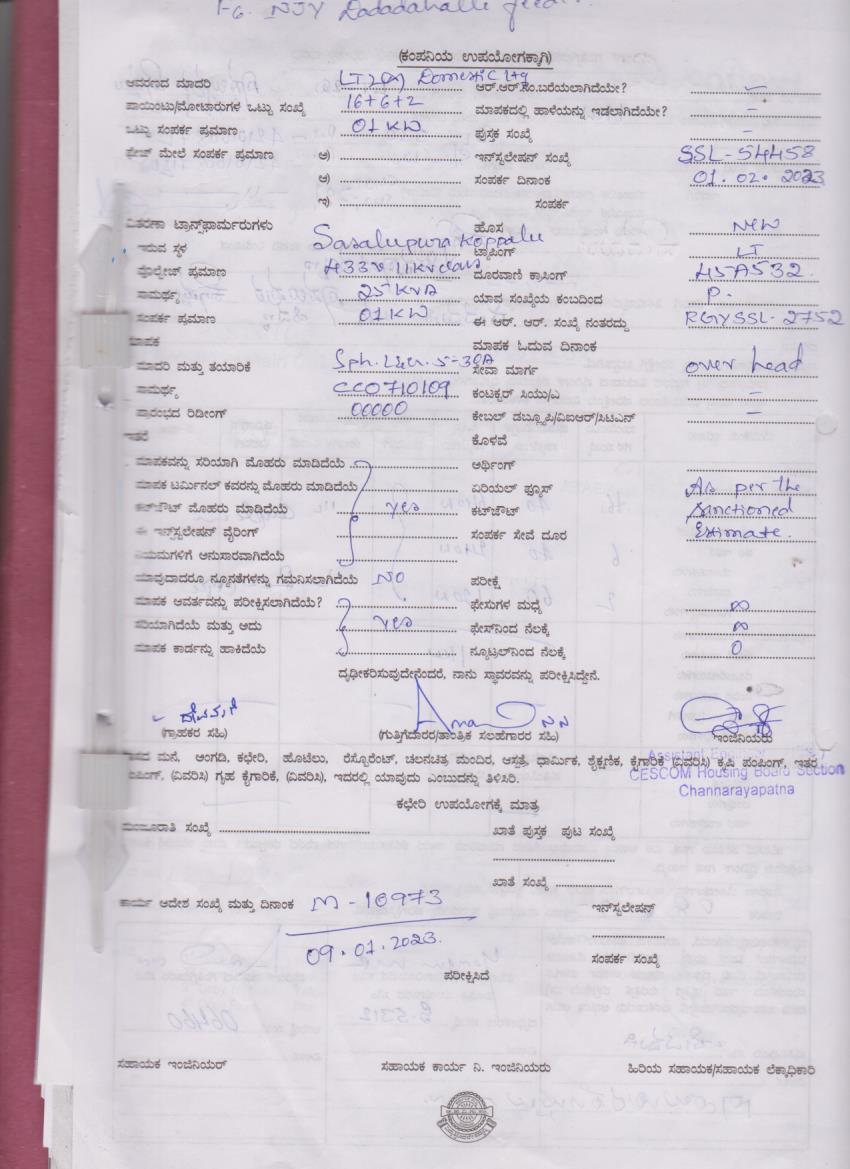 F6. NJY Dadadahalli feeder
(ಕಂಪನಿಯ ಉಪಯೋಗಕ್ಕಾಗಿ)
ಆವರಣದ ಮಾದರಿ LT2(a) Domestic Ltg ಆರ್.ಆರ್.ಸಂ.ಬರೆಯಲಾಗಿದೆಯೇ? –
ಪಾಯಿಂಟು/ಮೋಟಾರುಗಳ ಒಟ್ಟು ಸಂಖ್ಯೆ 16+6+2 ಮಾಪಕದಲ್ಲಿ ಹಾಳೆಯನ್ನು ಇಡಲಾಗಿದೆಯೇ? –
ಒಟ್ಟು ಸಂಪರ್ಕ ಪ್ರಮಾಣ 01 KW ಪುಸ್ತಕ ಸಂಖ್ಯೆ –
ಫೇಜ್ ಮೇಲೆ ಸಂಪರ್ಕ ಪ್ರಮಾಣ ಅ) ಇನ್‌ಸ್ಟಲೇಷನ್ ಸಂಖ್ಯೆ SSL-54458
ಆ) ಸಂಪರ್ಕ ದಿನಾಂಕ 01.02.2023
ಇ) ಸಂಪರ್ಕ
ವಿತರಣಾ ಟ್ರಾನ್ಸ್‌ಫಾರ್ಮರುಗಳು ಹೊಸ NEW
ಇರುವ ಸ್ಥಳ Sasalupura Koppalu ಟ್ಯಾಪಿಂಗ್ LT
ವೋಲ್ಟೇಜ್ ಪ್ರಮಾಣ 433v 11kv class ದೂರವಾಣಿ ಕ್ರಾಸಿಂಗ್ 45A532.
ಸಾಮರ್ಥ್ಯ 25 KVA ಯಾವ ಸಂಖ್ಯೆಯ ಕಂಬದಿಂದ P.
ಸಂಪರ್ಕ ಪ್ರಮಾಣ 01 KW ಈ ಆರ್. ಆರ್. ಸಂಖ್ಯೆ ನಂತರದ್ದು RGYSSL-2752
ಮಾಪಕ ಮಾಪಕ ಓದುವ ದಿನಾಂಕ
ಮಾದರಿ ಮತ್ತು ತಯಾರಿಕೆ Sph. L&er. 5-30A ಸೇವಾ ಮಾರ್ಗ over head
ಸಾಮರ್ಥ್ಯ CC0710109 ಕಂಟಕ್ಟರ್ ಸಿಯು/ಎ –
ಪ್ರಾರಂಭದ ರಿಡೀಂಗ್ 00000 ಕೇಬಲ್ ಡಬ್ಲ್ಯುಪಿ/ವಿಐಆರ್/ಸಿಟಿಎನ್ –
ಇತರೆ ಕೊಳವೆ
ಮಾಪಕವನ್ನು ಸರಿಯಾಗಿ ಮೊಹರು ಮಾಡಿದೆಯೆ ಅರ್ಥಿಂಗ್
ಮಾಪಕ ಟರ್ಮಿನಲ್ ಕವರನ್ನು ಮೊಹರು ಮಾಡಿದೆಯೆ ಏರಿಯಲ್ ಫ್ಯೂಸ್ As per the
ಕಟ್‌ಔಟ್ ಮೊಹರು ಮಾಡಿದೆಯೆ yes ಕಟ್‌ಔಟ್ sanctioned
ಈ ಇನ್‌ಸ್ಟಲೇಷನ್ ವೈರಿಂಗ್ ಸಂಪರ್ಕ ಸೇವೆ ದೂರ Estimate.
ನಿಯಮಗಳಿಗೆ ಅನುಸಾರವಾಗಿದೆಯೆ
ಯಾವುದಾದರೂ ನ್ಯೂನತೆಗಳನ್ನು ಗಮನಿಸಲಾಗಿದೆಯೆ NO ಪರೀಕ್ಷೆ
ಮಾಪಕ ಆವರ್ತವನ್ನು ಪರೀಕ್ಷಿಸಲಾಗಿದೆಯೆ? ಫೇಸುಗಳ ಮಧ್ಯೆ ∞
ಸರಿಯಾಗಿದೆಯೆ ಮತ್ತು ಅದು yes ಫೇಸ್‌ನಿಂದ ನೆಲಕ್ಕೆ ∞
ಮಾಪಕ ಕಾರ್ಡನ್ನು ಹಾಕಿದೆಯೆ ನ್ಯೂಟ್ರಲ್‌ನಿಂದ ನೆಲಕ್ಕೆ 0
ದೃಢೀಕರಿಸುವುದೇನೆಂದರೆ, ನಾನು ಸ್ಥಾವರವನ್ನು ಪರೀಕ್ಷಿಸಿದ್ದೇನೆ.
(ಗ್ರಾಹಕರ ಸಹಿ) (ಗುತ್ತಿಗೆದಾರರ/ತಾಂತ್ರಿಕ ಸಲಹೆಗಾರರ ಸಹಿ) ಇಂಜಿನಿಯರು
ವಾಸದ ಮನೆ, ಅಂಗಡಿ, ಕಛೇರಿ, ಹೊಟೆಲು, ರೆಸ್ಟೋರೆಂಟ್, ಚಲನಚಿತ್ರ ಮಂದಿರ, ಆಸ್ಪತ್ರೆ, ಧಾರ್ಮಿಕ, ಶೈಕ್ಷಣಿಕ, ಕೈಗಾರಿಕೆ (ವಿವರಿಸಿ) ಕೃಷಿ ಪಂಪಿಂಗ್, ಇತರೆ
ಪಂಪಿಂಗ್, (ವಿವರಿಸಿ) ಗೃಹ ಕೈಗಾರಿಕೆ, (ವಿವರಿಸಿ), ಇದರಲ್ಲಿ ಯಾವುದು ಎಂಬುದನ್ನು ತಿಳಿಸಿರಿ.
Assistant
CESCOM Housing Board Section
Channarayapatna
ಕಛೇರಿ ಉಪಯೋಗಕ್ಕೆ ಮಾತ್ರ
ಮಂಜೂರಾತಿ ಸಂಖ್ಯೆ ಖಾತೆ ಪುಸ್ತಕ ಪುಟ ಸಂಖ್ಯೆ
ಖಾತೆ ಸಂಖ್ಯೆ
ಕಾರ್ಯ ಆದೇಶ ಸಂಖ್ಯೆ ಮತ್ತು ದಿನಾಂಕ M-10973 ಇನ್‌ಸ್ಟಲೇಷನ್
09.01.2023. ಸಂಪರ್ಕ ಸಂಖ್ಯೆ
ಪರೀಕ್ಷಿಸಿದೆ
ಸಹಾಯಕ ಇಂಜಿನಿಯರ್ ಸಹಾಯಕ ಕಾರ್ಯ ನಿ. ಇಂಜಿನಿಯರು ಹಿರಿಯ ಸಹಾಯಕ/ಸಹಾಯಕ ಲೆಕ್ಕಾಧಿಕಾರಿ